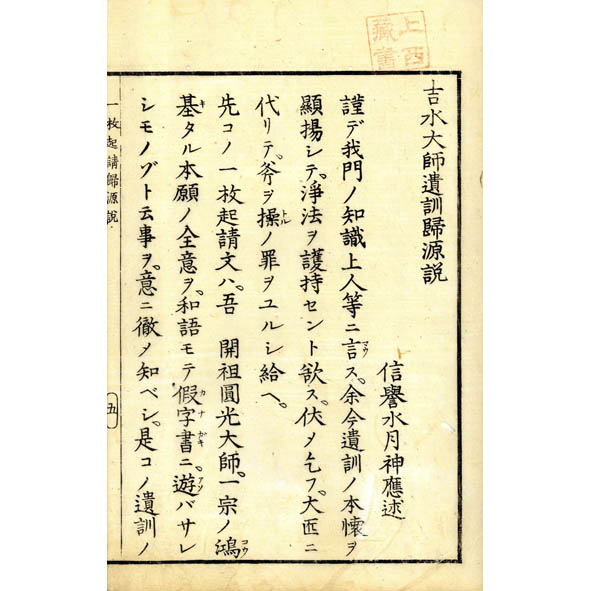 上西
藏書
吉水大師遺訓歸源説
信譽水月神應述
謹デ我門ノ知識上人等ニ言マウス。余今遺訓ノ本懷ヲ
顯揚シテ。淨法ヲ護持セント欲ス。伏メ乞フ。大匠ニ
代リテ。斧ヲ操トルノ罪ヲユルシ給ヘ。
先コノ一枚起請文ハ。吾 開祖圓光大師。一宗ノ鴻コウ
基キタル本願ノ全意ヲ。和語モテ假カ字ナ書ガキニ。遊アソバサレ
シモノゾト云事ヲ。意ニ徹メ知ベシ。是コノ遺訓ノ
一枚起請歸源説
五